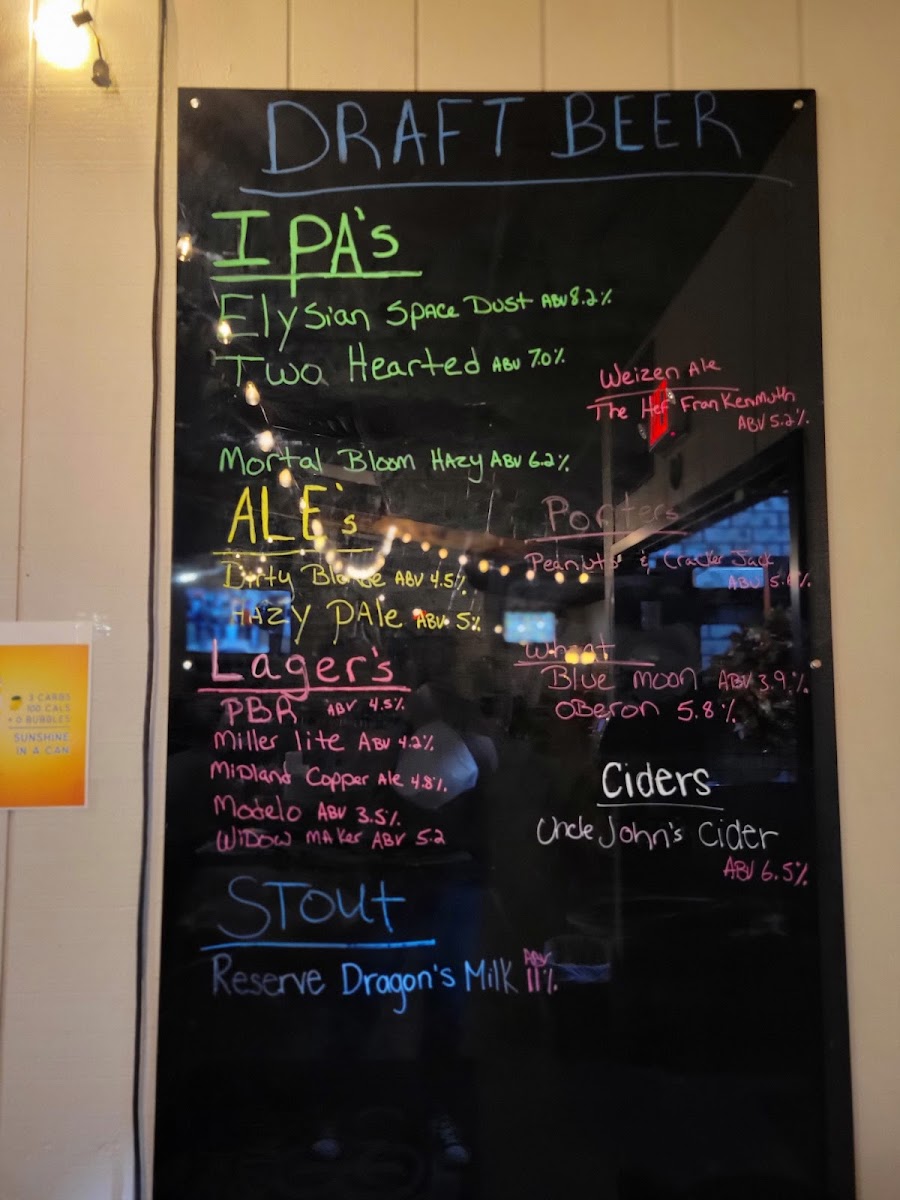 DRAFT BEER
IPA's
Elysian Space Dust ABV 8.2%
Two Hearted ABV 7.0%
Mortal Bloom Hazy ABV 6.2%
ALE's
Dirty Blonde ABV 4.5%
HAZY PALe ABV 5%
Lager's
PBR ABV 4.5%
Miller lite ABV 4.2%
Midland Copper Ale 4.8%
Modelo ABV 3.5%
Widow maker ABV 5.2
STout
Reserve Dragon's Milk ABV 11%
Weizen Ale
The Hef Frankenmuth
ABV 5.2%
Porters
Peanuts & Cracker Jack
ABV 5.6%
Wheat
Blue moon ABV 3.9%
OBeron 5.8%
Ciders
Uncle John's Cider
ABV 6.5%
3 CARBS
100 CALS
+ 0 BUBBLES
SUNSHINE
IN A CAN